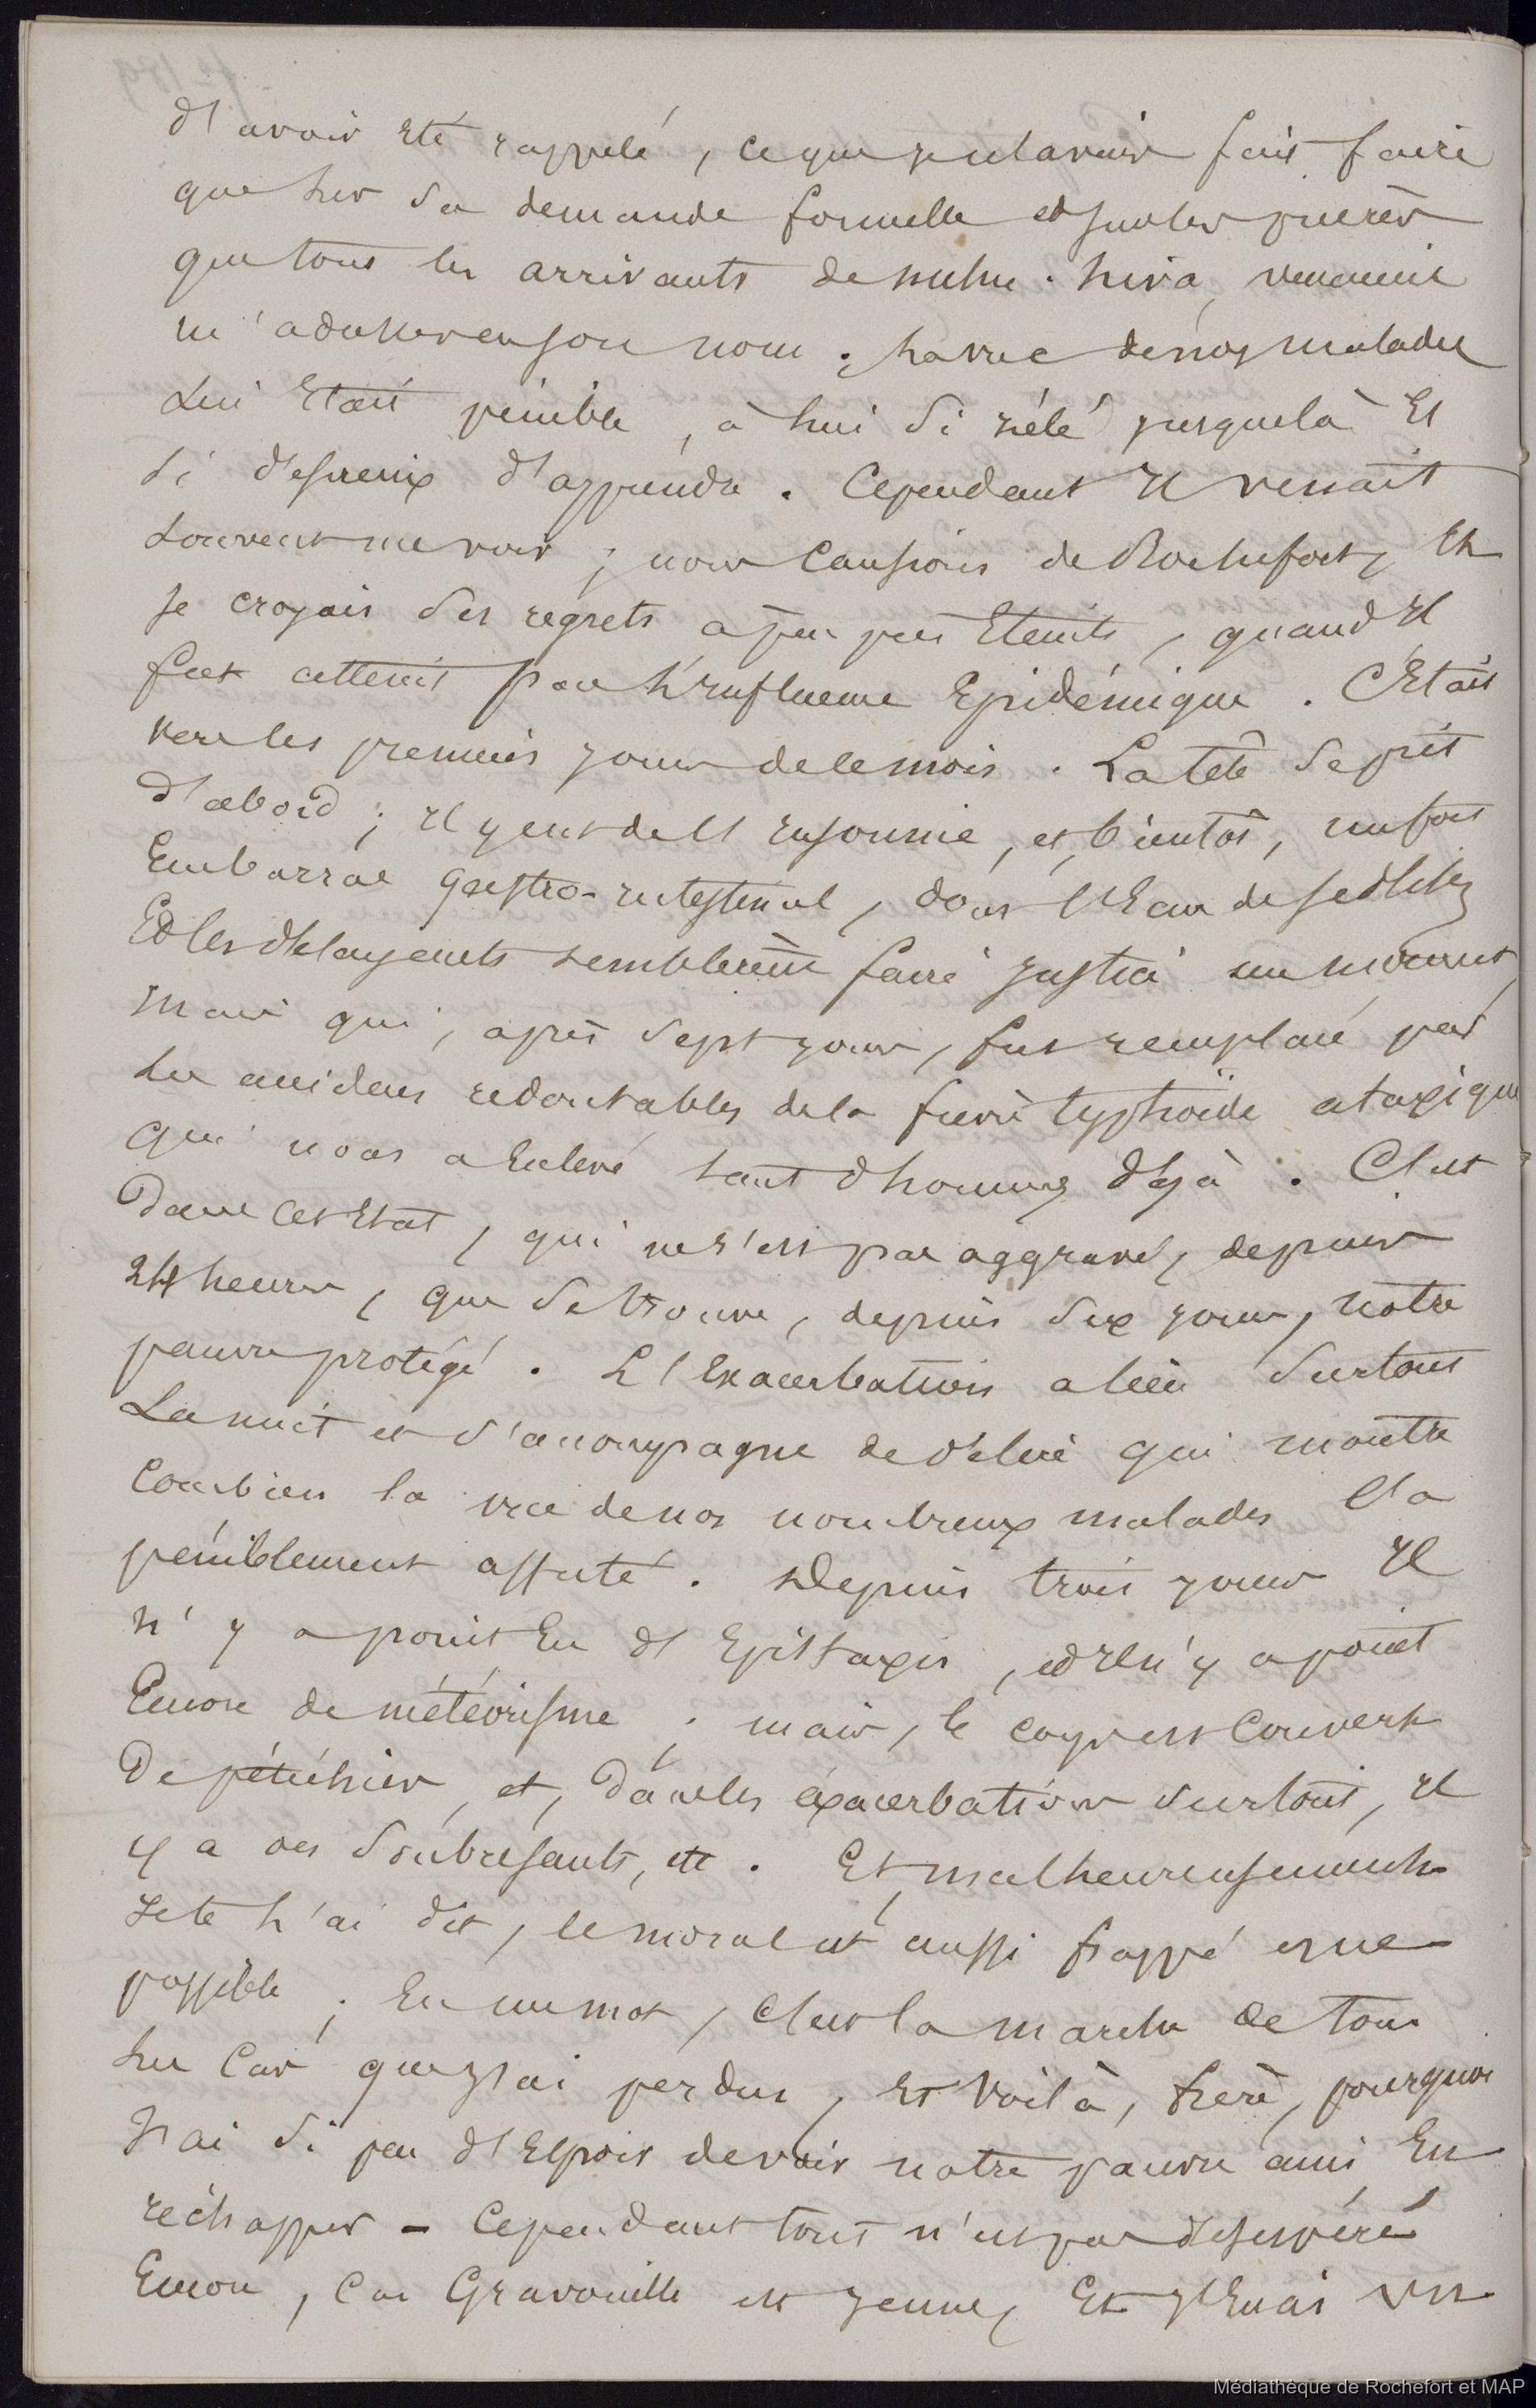 d'avoir été rappelé, ce que je n'avais fait faire
que sur sa demande formelle et sur les prières
que tous les arrivants de nuhu-hiva, venaient
m'adresser en son nom. La vue de nos malades
lui était pénible, à lui si zélé jusque là et
si désireux d'apprendre. Cependant il venait
souvent me voir ; nous causions de Rochefort, et
je croyais ses regrets à peu près éteints, quand il
fut atteint par l'influence épidémique. C'était
vers les premiers jours de ce mois. La tête se prit
d'abord ; il y eut de l'insomnie, et, bientôt, un fort
embarras gastro-intestinal, dont l'Eau de sedlitz
et les délayants semblèrent faire justice un moment,
mais qui, après sept jours, fut remplacé par
les accidens redoutables de la fièvre typhoïde ataxique
qui nous a enlevé tant d'hommes déjà. C'est
dans cet état, qui ne s'est pas aggravé, depuis
24 heures, que se trouve, depuis six jours, notre
pauvre protégé. L'exacerbation a lieu surtout
la nuit et s'accompagne de délire qui montre
combien la vue de nos nombreux malades l'a
péniblement affecté. Depuis trois jours il
n'y a point eu d'Epistaxis, et il n'y a point
encore de météorisme ; mais, le corps est couvert
de pétéchies, et, dans les exacerbations surtout, il
y a des soubresauts, etc. Et, malheureusement
je te l'ai dit, le moral est aussi frappé que
possible ; en un mot, c'est la marche de tous
les cas que j'ai perdus, et voilà, frère, pourquoi
j'ai si peu d'Espoir de voir notre pauvre ami en
réchapper - Cependant tout n'est pas désespéré
encore, car Gravouille est jeune, et j'en ai vu
Médiathèque de Rochefort et MAP